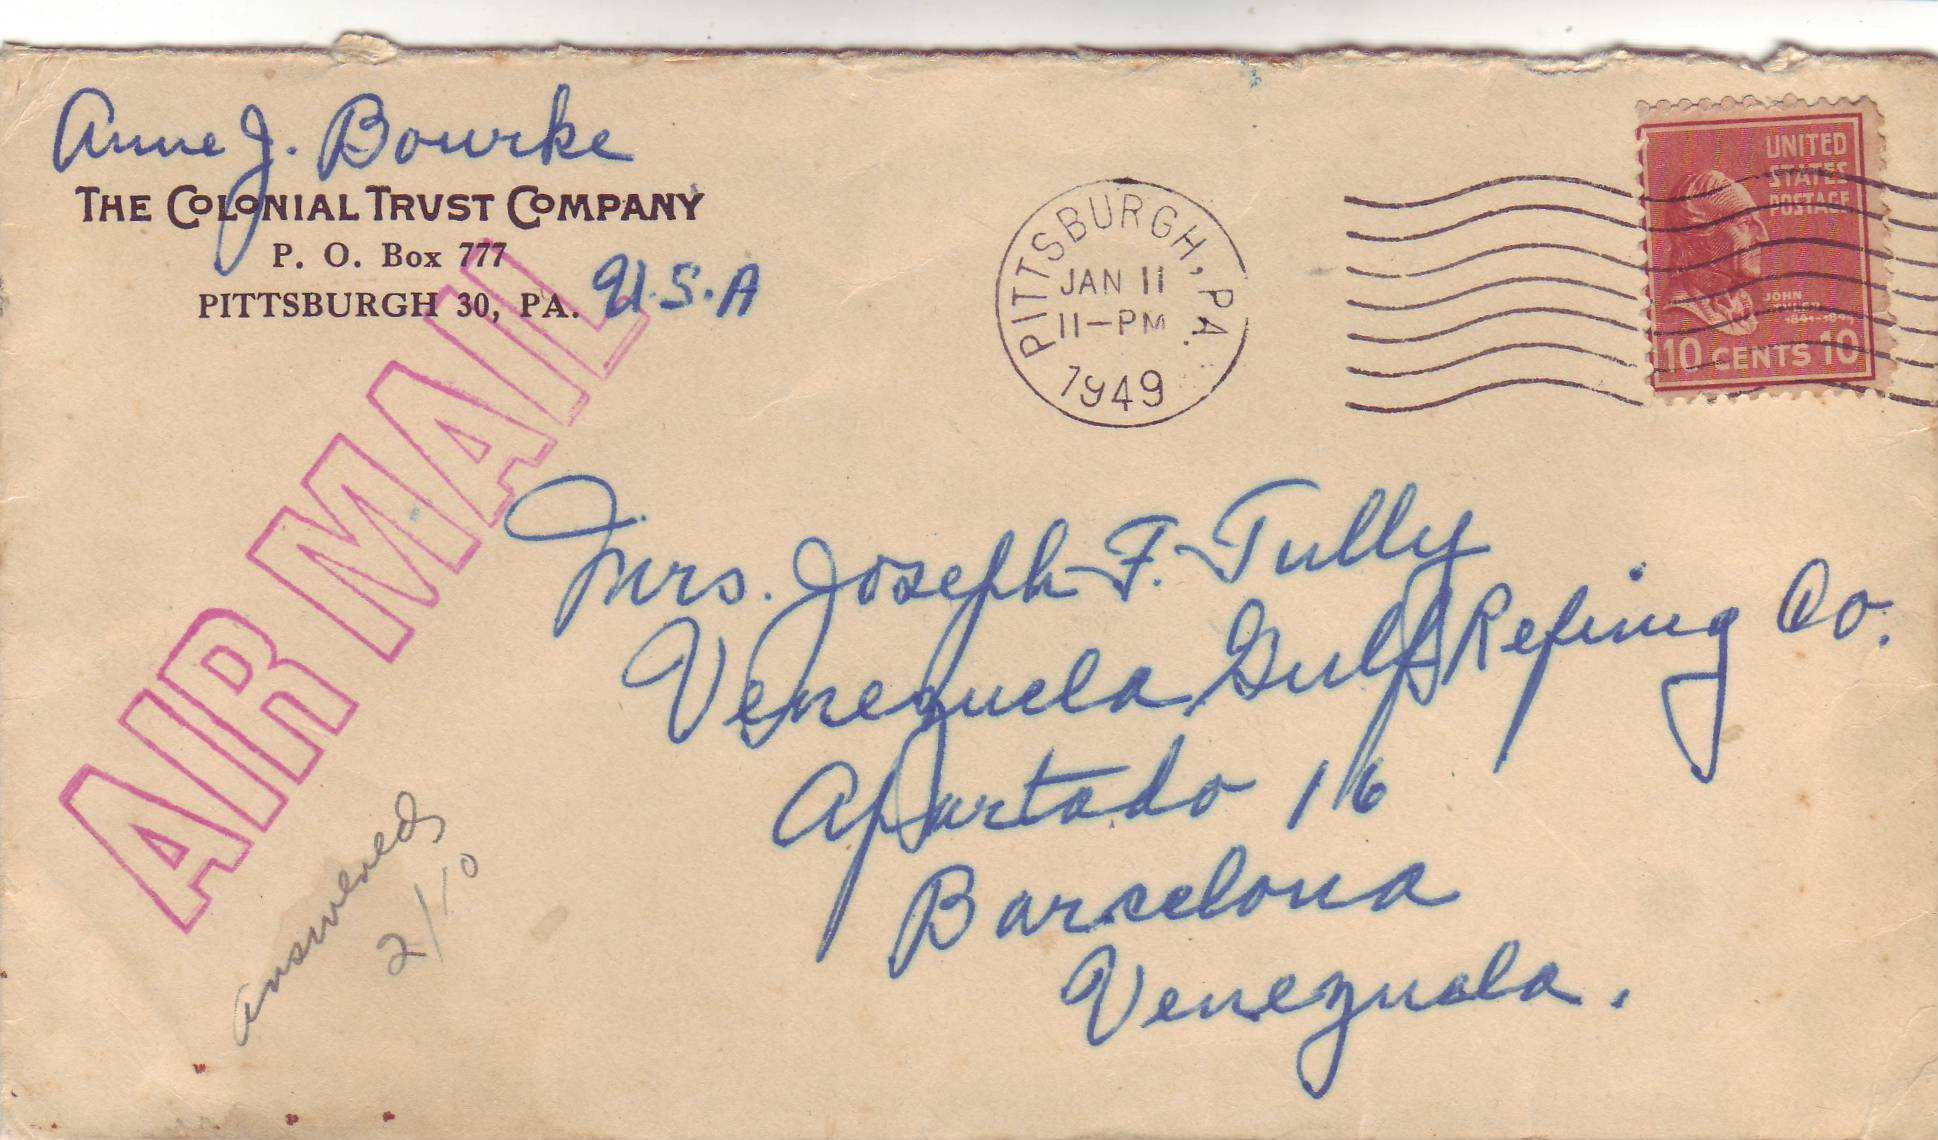 Anne J. Bourke
THE COLONIAL TRUST COMPANY
P. O. Box 777
PITTSBURGH 30, PA. U.S.A
AIR MAIL
PITTSBURGH, PA.
JAN 11
11-PM
1949
UNITED
STATES
POSTAGE
JOHN
10 CENTS 10
Mrs. Joseph F. Tully
Venezuela Gulf Refining Co.
Apartado 16
Barcelona
Venezuela.
answered
2/10